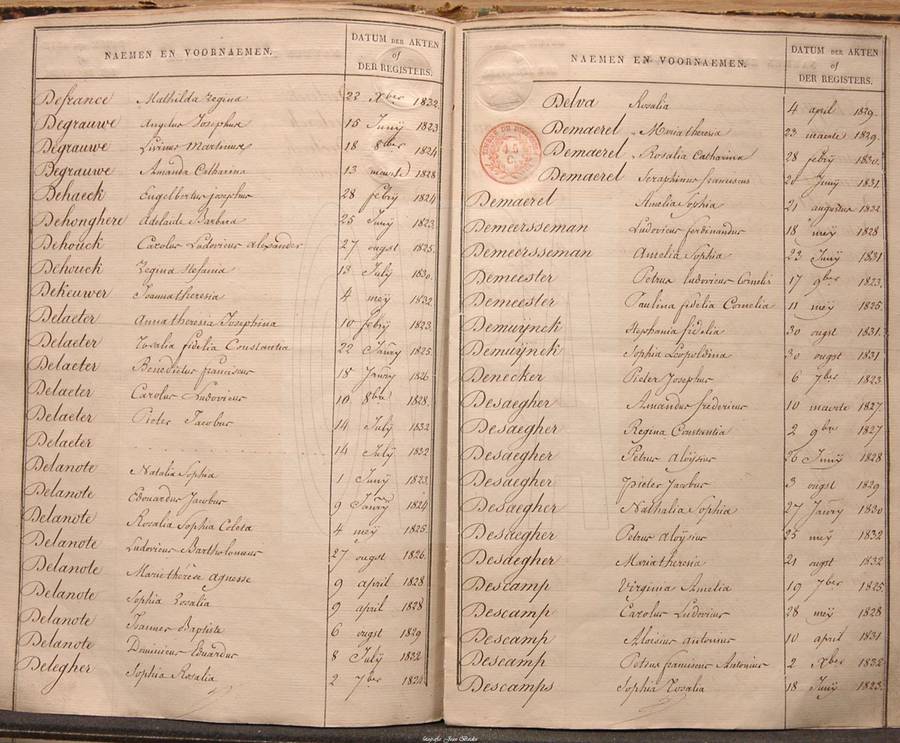 NAEMEN EN VOORNAEMEN.
DATUM DER AKTEN
of
DER REGISTERS.
Defrance Mathilda Regina 22 Xber 1832
Degrauwe Angelus Josephus 15 Junij 1823
Degrauwe Livinus Martinus 18 8ber 1824
Degrauwe Amanda Catharina 13 maerte 1828
Dehaeck Engelbertus josephus 28 febrij 1824
Dehonghere Adelaide Barbara 25 Junij 1823
Dehouck Carolus Ludovicus Alexander 27 ougst 1825
Dehouck Regina Stefania 13 July 1830
Dekeuwer Joanna theresia 4 meij 1832
Delaeter Anna theresia Josephina 10 febrij 1823
Delaeter Rosalia fidelia Constantia 22 Janry 1825
Delaeter Benedictus franciscus 18 Janry 1826
Delaeter Carolus Ludovicus 10 8bre 1828
Delaeter Pieter Jacobus 14 July 1832
Delaeter 14 July 1832
Delanote Natalia Sophia 1 Junij 1823
Delanote Edouardus Jacobus 9 Janry 1824
Delanote Rosalia Sophia Coleta 4 meij 1825
Delanote Ludovicus Bartholomeus 27 ougst 1826
Delanote Marie thérèse Agnesse 9 april 1828
Delanote Sophia Rosalia 9 april 1828
Delanote Joannes Baptiste 6 ougst 1829
Delanote Dominicus Eduardus 8 July 1832
Delegher Sophia Rosalia 2 7bre
NAEMEN EN VOORNAEMEN.
DATUM DER AKTEN
of
DER REGISTERS.
Delva Rosalia 4 april 1829
Demaerel Maria theresia 23 maerte 1829
Demaerel Rosalia Catharina 28 febrij 1830
Demaerel Seraphinus franciscus Junij 1831
Demaerel Amelia Sophia 21 augustus 1832
Demeersseman Ludovicus ferdinandus 18 meij 1828
Demeersseman Amelia Sophia 23 Junij 1831
Demeester Petrus ludovicus Cornelis 17 9bre 1823
Demeester Paulina fidelia Cornelia 11 meij 1825
Demuijnck Stephania fidelia 30 ougst 1831
Demuijnck Sophia Leopoldina 30 ougst 1831
Denecker Pieter Josephus 6 7ber 1823
Desaegher Amandus fredericus 10 maerte 1827
Desaegher Regina Constantia 2 9bre 1827
Desaegher Petrus Aloijsius 26 Junij 1828
Desaegher pieter Jacobus 3 ougst 1829
Desaegher Nathalia Sophia 27 Janry 1830
Desaegher Petrus Aloijsius 25 meij 1832
Desaegher Maria theresia 21 ougst 1832
Descamp Virginia Amelia 19 7ber 1825
Descamp Carolus Ludovicus 28 meij 1828
Descamp Aloisius antonius 10 april 1831
Descamp Petrus franciscus Antonius 2 Xber 1832
Descamps Sophia Rosalia 18 Junij 1823